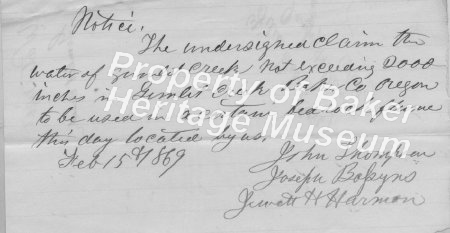 Notice.
The undersigned claim the
water of Creek not exceeding 2000
inches in Creek Baker Co Oregon
to be used in a certain
this day located by us.
Feb 15th 1869
John Thompson
Joseph
Jewett H Harmon
Property of Baker
Heritage Museum